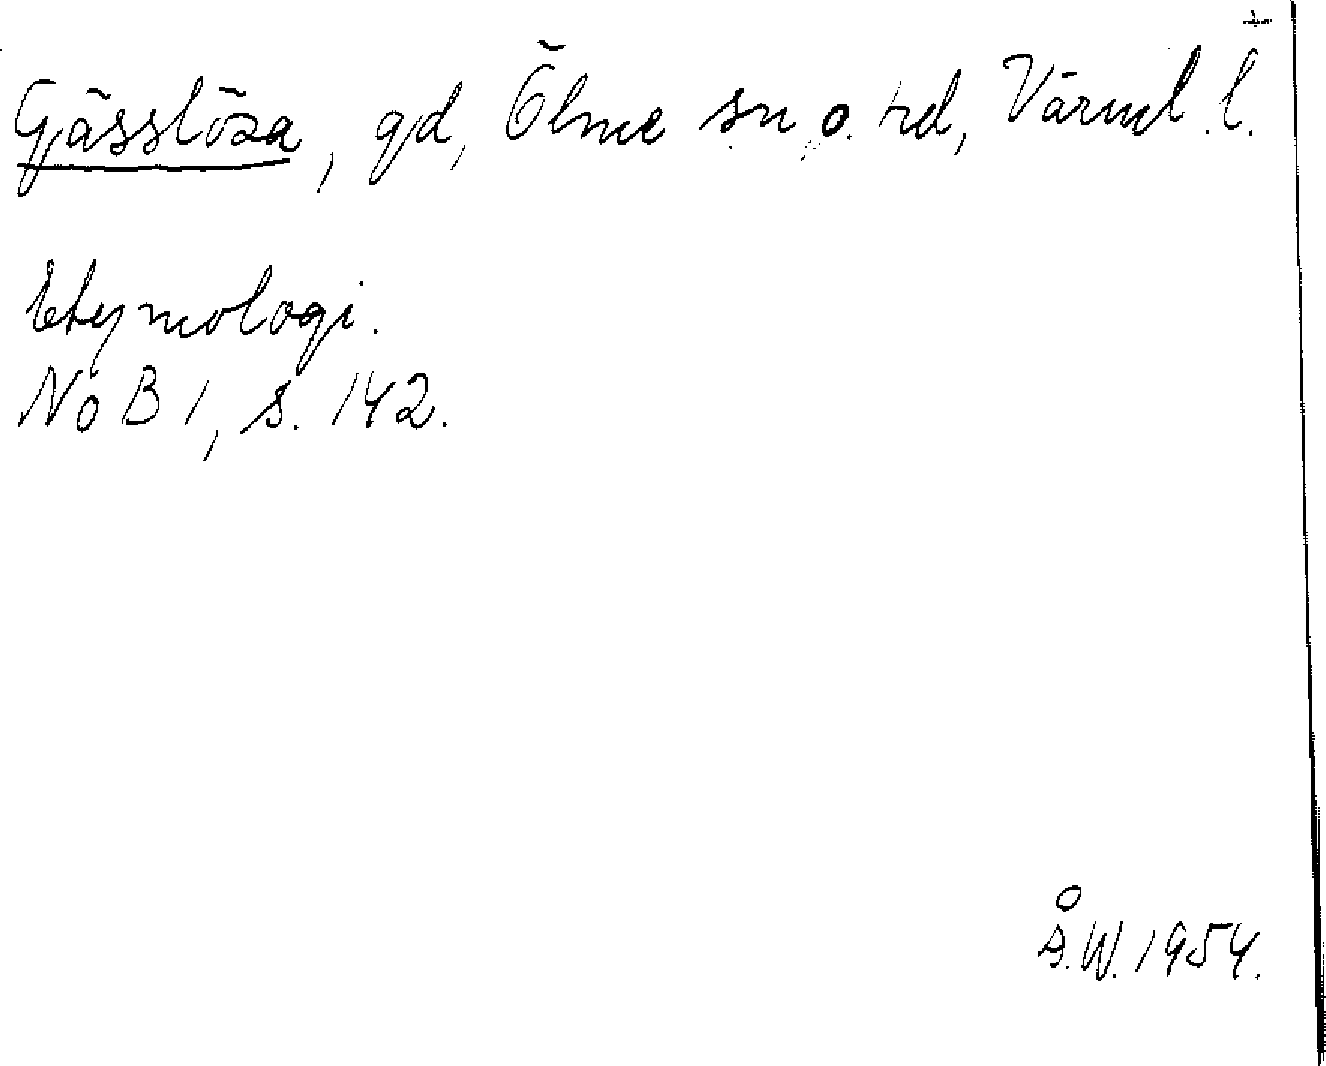 Gässlösa, gd, Ölme sn o. hd, Värml. l.
Etymologi.
NoB 1, s. 142.
Å.W. 1954.